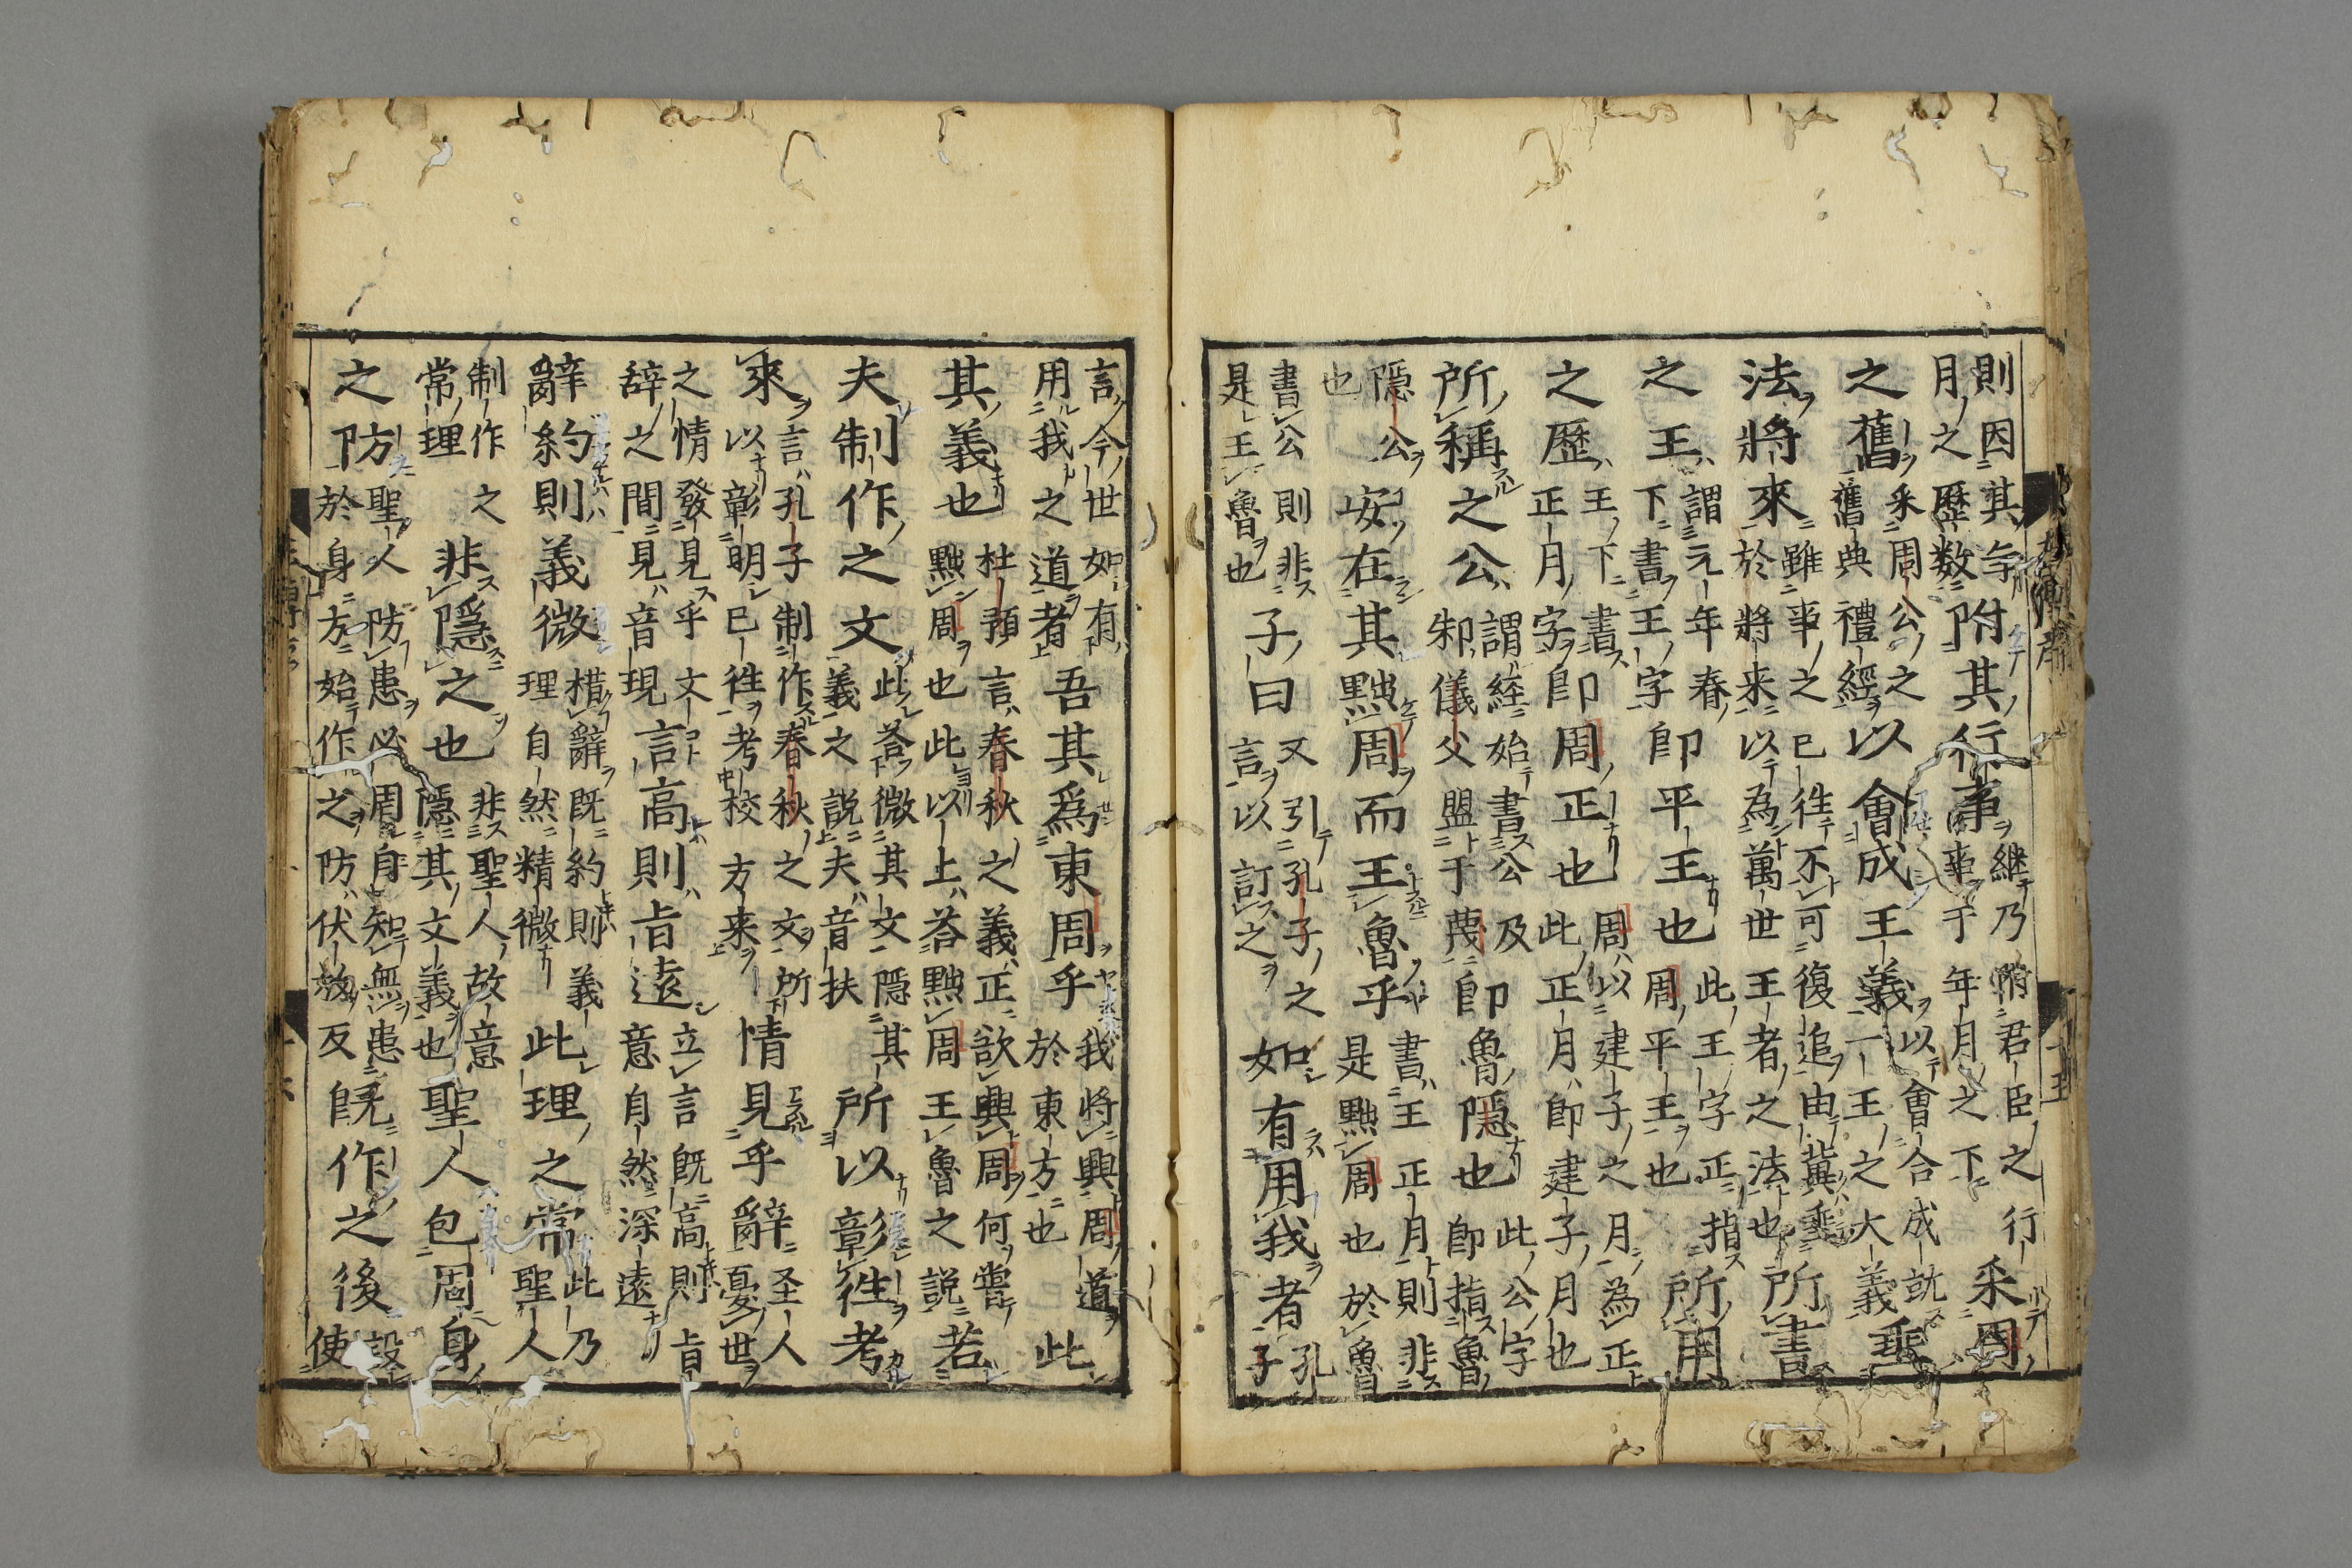 則因其年
月之歷数
附其行事
継乃附君臣之行
事于年月之下
采周
之舊
采周公之
舊典禮經
以會成王義
以會合成就
一王之大義
垂
法將來
雖事之已徃不可復追由冀垂
於將来以為萬世王者之法也
所書
之王
謂元年春
下書王字
即平王也
此王字正指
周平王也
所用
之歷
王下書
正月字
即周正也
周以建子之月為正
此正月即建子月也
所稱之公
謂経始書公及
邾儀父盟于蔑
即魯隱也
此公字
即指魯
隱公
也
安在其黜周而王魯乎
書王正月則非
是黜周也於魯
書公則非
是王魯也
子曰
又引孔子之
言以訂之
如有用我者
孔
子
言今世如有
用我之道者
吾其爲東周乎
我將興周道
於東方也
此
其義也
杜預言春秋之義正欲興周何嘗
黜周也此以上荅黜周王魯之説
若
夫制作之文
此荅微其文隱其
義之説夫音扶
所以彰徃考
來
言孔子制作春秋之文所
以彰明已徃考校方来
情見乎辭
圣人
憂世
之情發見乎文
辞之間見音現
言高則旨遠
立言既高則旨
意自然深遠
辭約則義微
措辭既約則義
理自然精微
此理之常
此乃
聖人
制作之
常理
非隱之也
非聖人故意
隱其文義也
聖人包周身
之防
聖人防患必周身知無患
於身方始作之防伏放反
既作之後
設
使